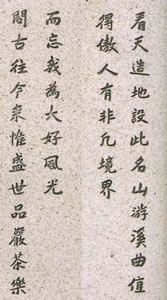 看天造地設此名山游溪曲值
得傲人有非凡境界
問古往今來惟盛世品巖茶樂
而忘我為大好風光